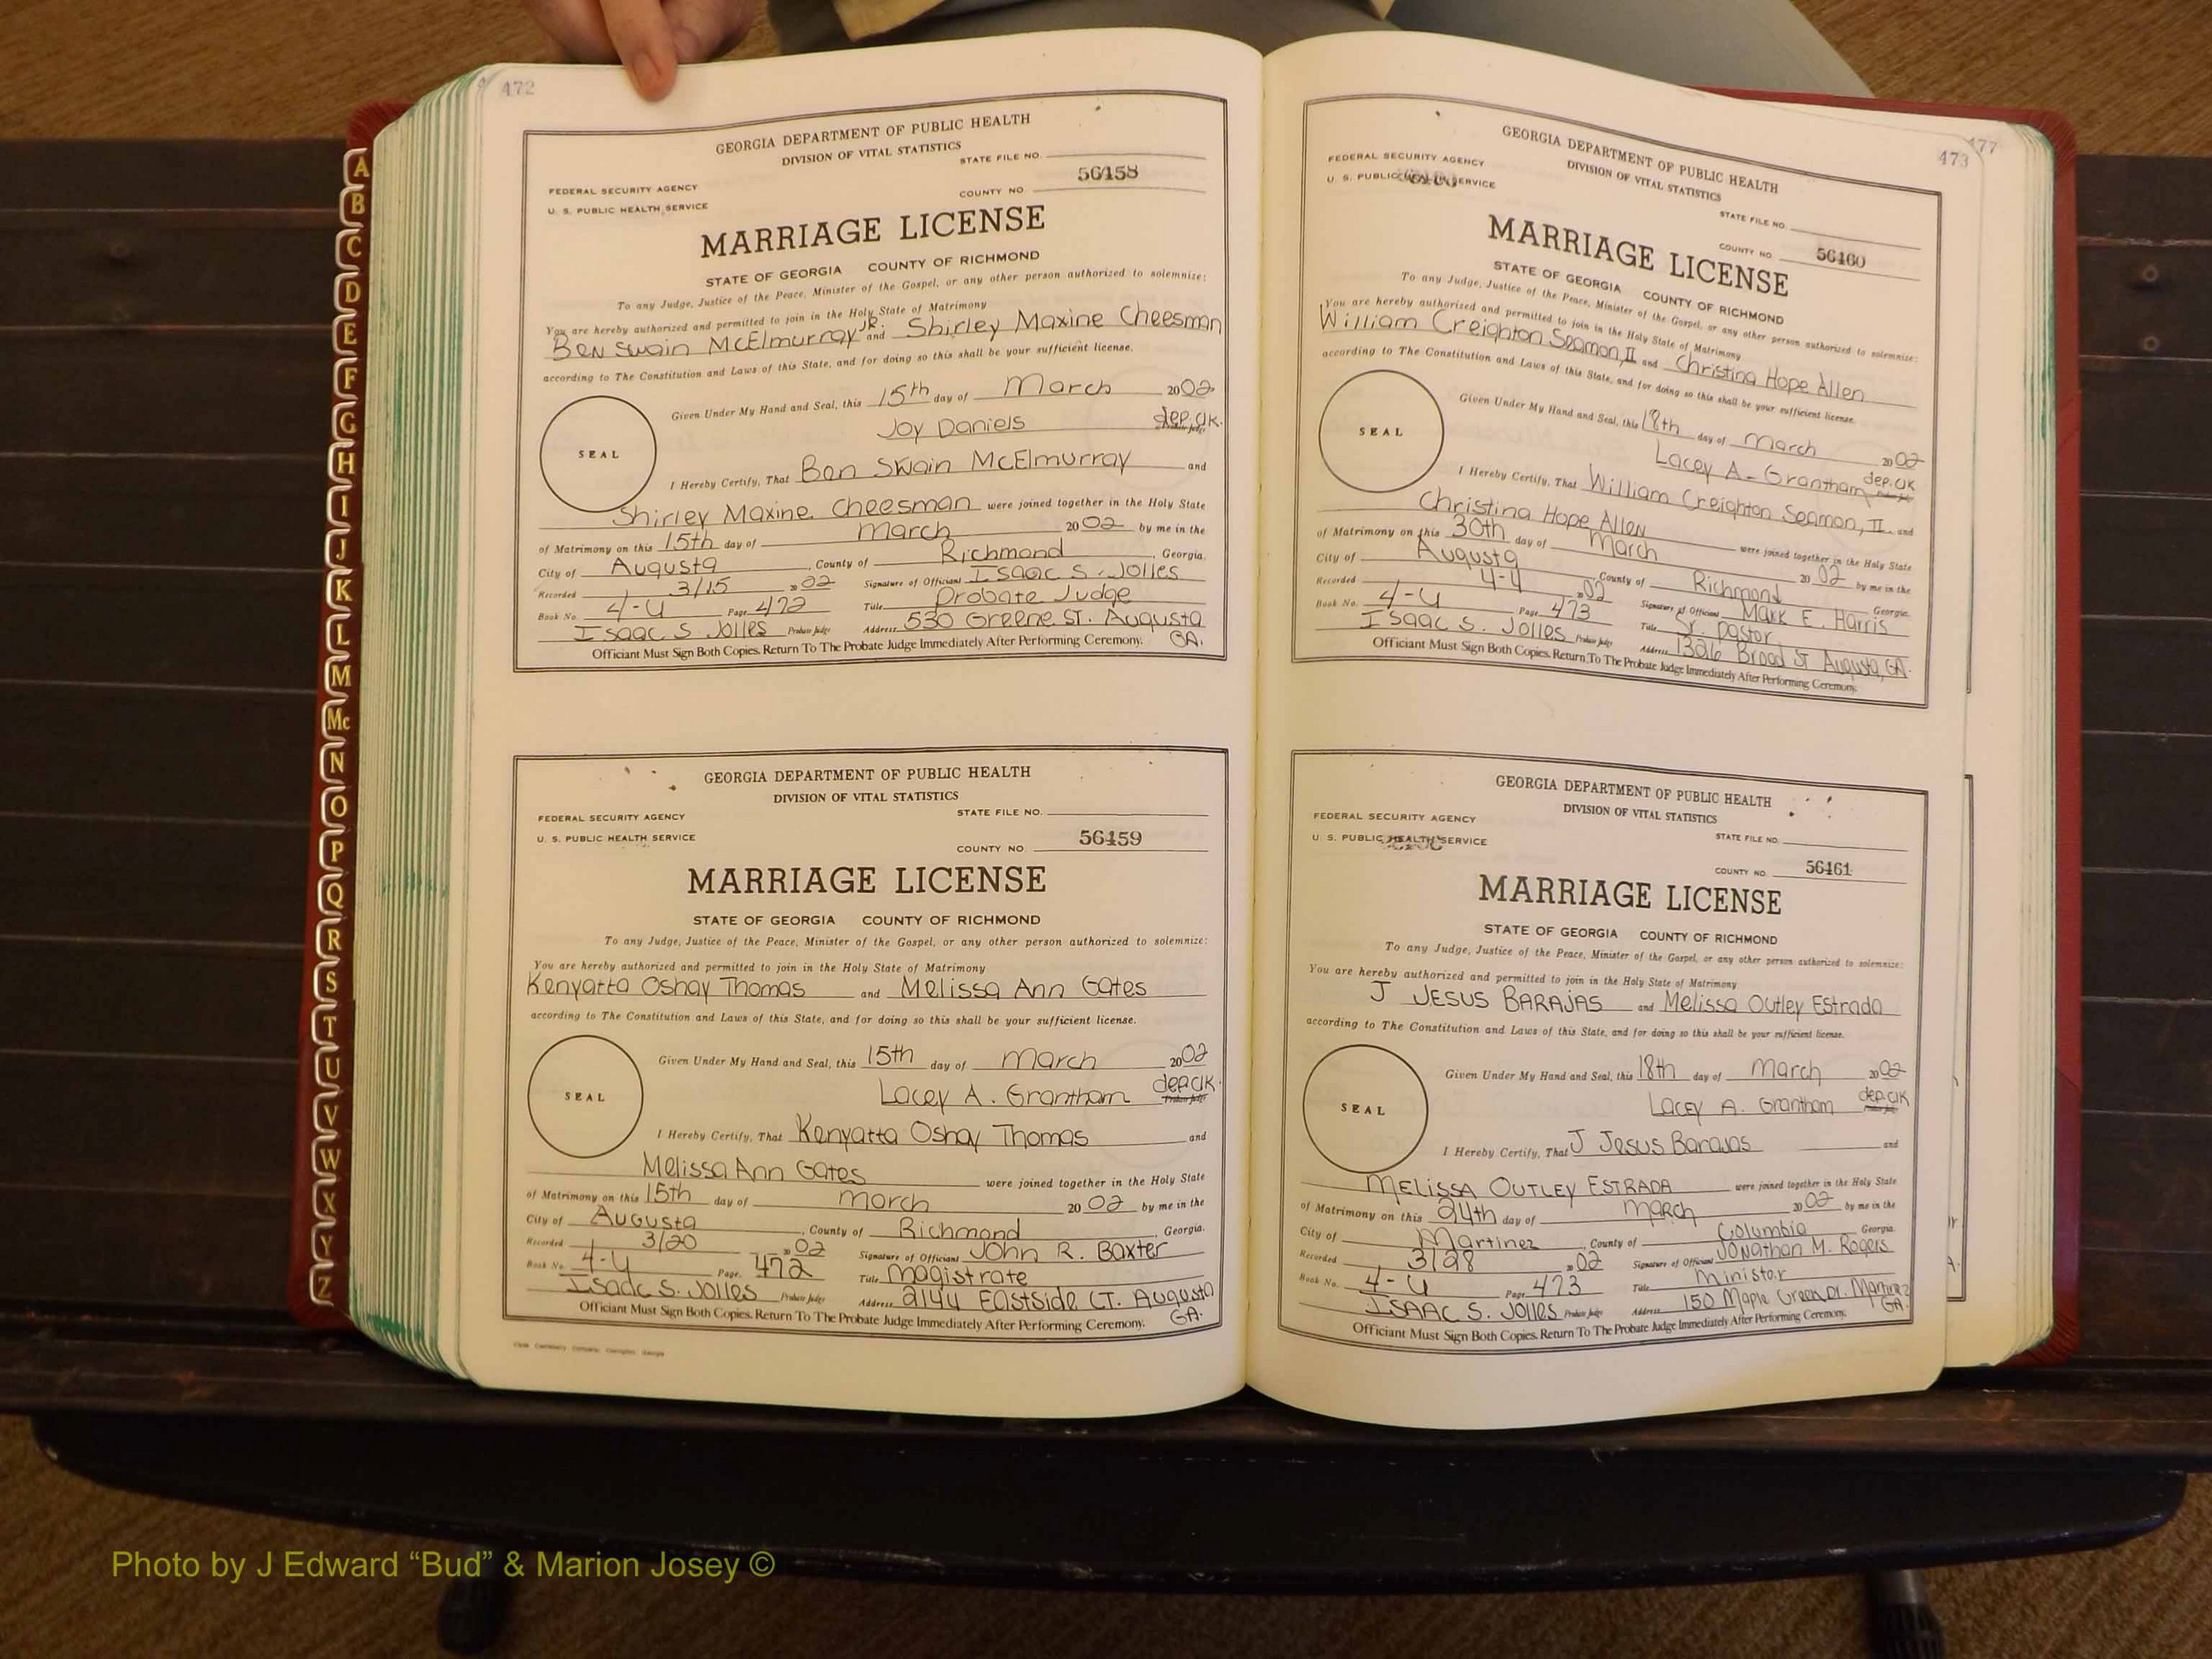 A
B
C
D
E
F
G
H
I
J
K
L
M
Mc
N
O
P
Q
R
S
T
U
V
W
X
Y
Z
472
GEORGIA DEPARTMENT OF PUBLIC HEALTH
DIVISION OF VITAL STATISTICS
STATE FILE NO.
FEDERAL SECURITY AGENCY
U. S. PUBLIC HEALTH SERVICE
COUNTY NO. 56458
MARRIAGE LICENSE
STATE OF GEORGIA COUNTY OF RICHMOND
To any Judge, Justice of the Peace, Minister of the Gospel, or any other person authorized to solemnize:
You are hereby authorized and permitted to join in the Holy State of Matrimony
Ben Swain McElmurray Jr. and Shirley Maxine Cheesman
according to The Constitution and Laws of this State, and for doing so this shall be your sufficient license.
Given Under My Hand and Seal, this 15th day of March 2002
Joy Daniels dep. clk. Probate Judge
SEAL
I Hereby Certify, That Ben Swain McElmurray and
Shirley Maxine Cheesman were joined together in the Holy State
of Matrimony on this 15th day of March 2002 by me in the
City of Augusta, County of Richmond, Georgia.
Recorded 3/15 2002 Signature of Officiant Isaac S. Jolles
Book No. 4-U Page 472 Title Probate Judge
Isaac S Jolles Probate Judge Address 530 Greene St. Augusta GA.
Officiant Must Sign Both Copies. Return To The Probate Judge Immediately After Performing Ceremony.
GEORGIA DEPARTMENT OF PUBLIC HEALTH
DIVISION OF VITAL STATISTICS
STATE FILE NO.
FEDERAL SECURITY AGENCY
U. S. PUBLIC HEALTH SERVICE
COUNTY NO. 56459
MARRIAGE LICENSE
STATE OF GEORGIA COUNTY OF RICHMOND
To any Judge, Justice of the Peace, Minister of the Gospel, or any other person authorized to solemnize:
You are hereby authorized and permitted to join in the Holy State of Matrimony
Kenyatta Oshay Thomas and Melissa Ann Gates
according to The Constitution and Laws of this State, and for doing so this shall be your sufficient license.
Given Under My Hand and Seal, this 15th day of March 2002
Lacey A. Grantham dep. clk. Probate Judge
SEAL
I Hereby Certify, That Kenyatta Oshay Thomas and
Melissa Ann Gates were joined together in the Holy State
of Matrimony on this 15th day of March 2002 by me in the
City of Augusta, County of Richmond Georgia.
Recorded 3/20 2002 Signature of Officiant John R. Baxter
Book No. 4-U Page 472 Title Magistrate
Isaac S. Jolles Probate Judge Address 2144 Eastside Ct. Augusta GA.
Officiant Must Sign Both Copies. Return To The Probate Judge Immediately After Performing Ceremony.
477
473
GEORGIA DEPARTMENT OF PUBLIC HEALTH
DIVISION OF VITAL STATISTICS
FEDERAL SECURITY AGENCY
U. S. PUBLIC HEALTH SERVICE
STATE FILE NO.
COUNTY NO. 56460
MARRIAGE LICENSE
STATE OF GEORGIA COUNTY OF RICHMOND
To any Judge, Justice of the Peace, Minister of the Gospel, or any other person authorized to solemnize:
You are hereby authorized and permitted to join in the Holy State of Matrimony
William Creighton Seamon, II and Christina Hope Allen
according to The Constitution and Laws of this State, and for doing so this shall be your sufficient license.
Given Under My Hand and Seal, this 18th day of March 2002
Lacey A. Grantham dep. clk Probate Judge
SEAL
I Hereby Certify, That William Creighton Seamon, II and
Christina Hope Allen were joined together in the Holy State
of Matrimony on this 30th day of March 2002 by me in the
City of Augusta County of Richmond Georgia.
Recorded 4-4 2002 Signature of Officiant Mark E. Harris
Book No. 4-U Page 473 Title Sr. Pastor
Isaac S. Jolles Probate Judge Address 1326 Broad St Augusta, GA.
Officiant Must Sign Both Copies. Return To The Probate Judge Immediately After Performing Ceremony.
GEORGIA DEPARTMENT OF PUBLIC HEALTH
DIVISION OF VITAL STATISTICS
FEDERAL SECURITY AGENCY
U. S. PUBLIC HEALTH SERVICE
STATE FILE NO.
COUNTY NO. 56461
MARRIAGE LICENSE
STATE OF GEORGIA COUNTY OF RICHMOND
To any Judge, Justice of the Peace, Minister of the Gospel, or any other person authorized to solemnize:
You are hereby authorized and permitted to join in the Holy State of Matrimony
J JESUS BARAJAS and Melissa Outley Estrada
according to The Constitution and Laws of this State, and for doing so this shall be your sufficient license.
Given Under My Hand and Seal, this 18th day of March 2002
Lacey A. Grantham dep. clk Probate Judge
SEAL
I Hereby Certify, That J Jesus Barajas and
MELISSA OUTLEY ESTRADA were joined together in the Holy State
of Matrimony on this 24th day of March 2002 by me in the
City of Martinez, County of Columbia Georgia.
Recorded 3/28 2002 Signature of Officiant Jonathan M. Rogers
Book No. 4-U Page 473 Title Minister
ISAAC S. Jolles Probate Judge Address 150 Maple Creek Dr. Martinez GA.
Officiant Must Sign Both Copies. Return To The Probate Judge Immediately After Performing Ceremony.
Photo by J Edward “Bud” & Marion Josey ©